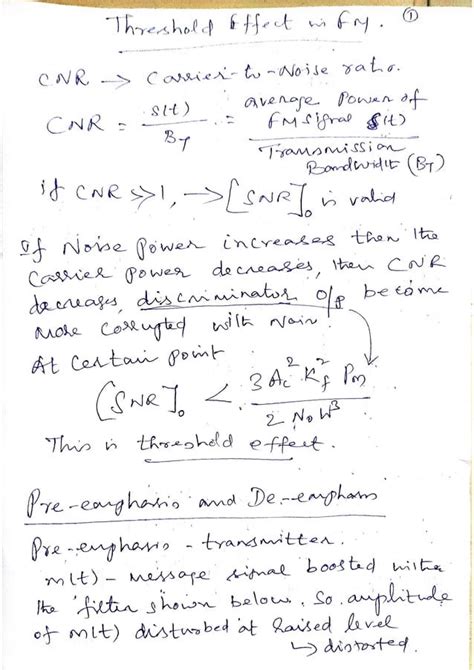 Threshold Effect in FM. ①
CNR → Carrier-to-Noise ratio.
CNR = S(t) / B_T = average Power of FM signal S(t) / Transmission Bandwidth (B_T)
if CNR >> 1, → [SNR]_o is valid
If Noise Power increases then the
Carrier power decreases, then CNR
decreases, discriminator o/p become
more corrupted with Noise.
At certain point
[SNR]_o < 3 A_c^2 K_f^2 P_m / 2 N_o W^3
This is threshold effect.
Pre-emphasis and De-emphasis
Pre-emphasis - transmitter.
m(t) - message signal boosted with a
the filter shown below. So amplitude
of m(t) distrubed at Raised level
↳ distorted.